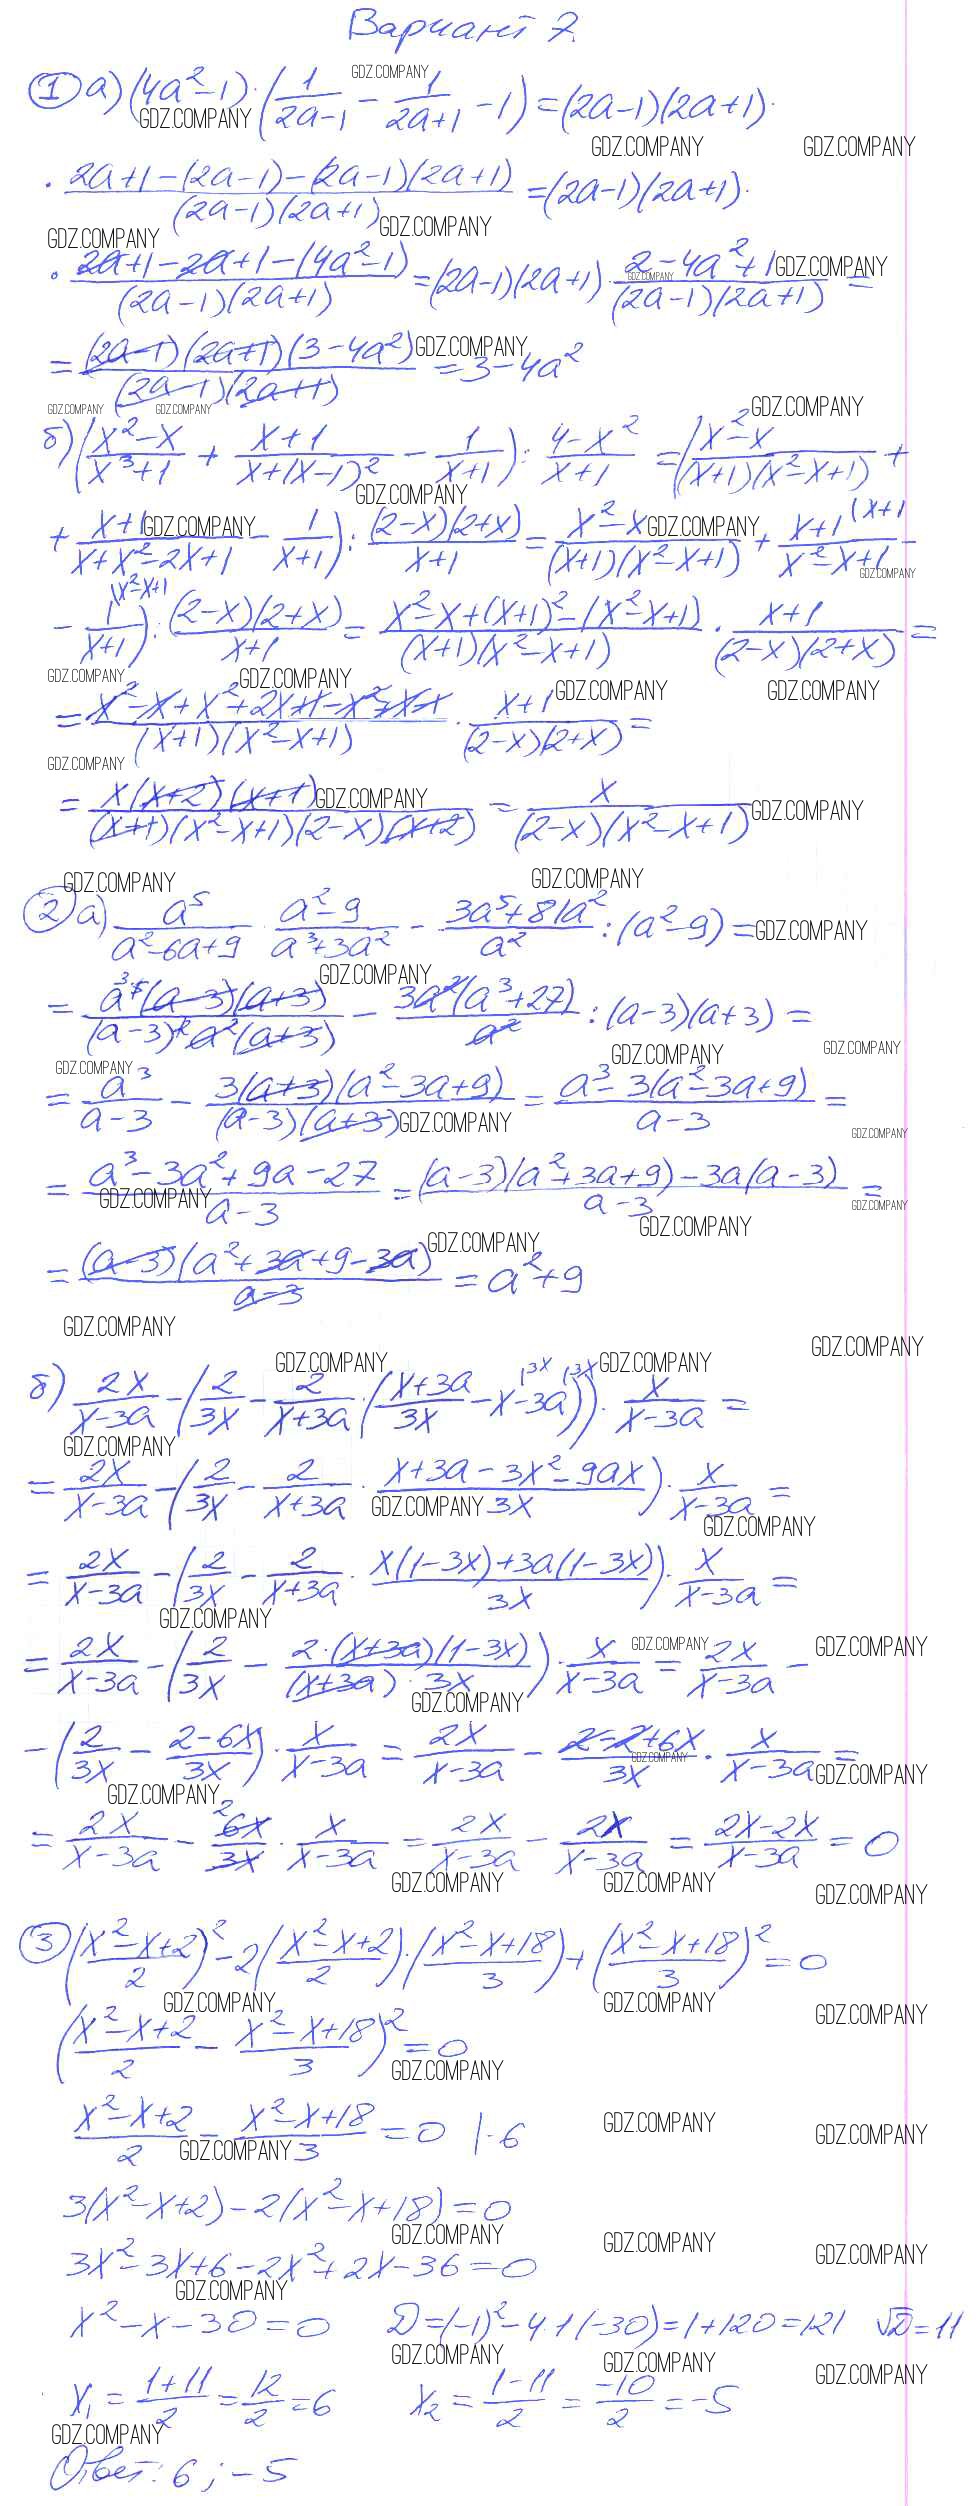 Вариант 7.
① а) (4a²-1)·(1/(2a-1) - 1/(2a+1) - 1) = (2a-1)(2a+1)·
· (2a+1-(2a-1)-(2a-1)(2a+1))/((2a-1)(2a+1)) = (2a-1)(2a+1)·
· (2a+1-2a+1-(4a²-1))/((2a-1)(2a+1)) = (2a-1)(2a+1)· (2-4a²+1)/((2a-1)(2a+1)) =
= ((2a-1)(2a+1)(3-4a²))/((2a-1)(2a+1)) = 3-4a²
б) ((x²-x)/(x³+1) + (x+1)/(x+(x-1)²) - 1/(x+1)) : (4-x²)/(x+1) = ((x²-x)/((x+1)(x²-x+1)) +
+ (x+1)/(x+x²-2x+1) - 1/(x+1)) : ((2-x)(2+x))/(x+1) = (x²-x)/((x+1)(x²-x+1)) + (x+1)/(x²-x+1) (x+1 -
- 1/(x+1) (x²-x+1) : ((2-x)(2+x))/(x+1) = (x²-x+(x+1)²-(x²-x+1))/((x+1)(x²-x+1)) · (x+1)/((2-x)(2+x)) =
= (x²-x+x²+2x+1-x²+x-1)/((x+1)(x²-x+1)) · (x+1)/((2-x)(2+x)) =
= (x(x+2)(x+1))/((x+1)(x²-x+1)(2-x)(x+2)) = x/((2-x)(x²-x+1))
② а) a⁵/(a²-6a+9) · (a²-9)/(a³+3a²) - (3a⁵+81a²)/a² : (a²-9) =
= (a⁵ ³(a-3)(a+3))/((a-3)²a²(a+3)) - (3a²(a³+27))/a² : (a-3)(a+3) =
= a³/(a-3) - (3(a+3)(a²-3a+9))/((a-3)(a+3)) = (a³-3(a²-3a+9))/(a-3) =
= (a³-3a²+9a-27)/(a-3) = ((a-3)(a²+3a+9)-3a(a-3))/(a-3) =
= ((a-3)(a²+3a+9-3a))/(a-3) = a²+9
б) 2x/(x-3a) - (2/3x - 2/(x+3a)·((x+3a)/3x - x (3x - 3a (3x))· x/(x-3a) =
= 2x/(x-3a) - (2/3x - 2/(x+3a) · (x+3a-3x²-9ax)/3x)· x/(x-3a) =
= 2x/(x-3a) - (2/3x - 2/(x+3a) · (x(1-3x)+3a(1-3x))/3x)· x/(x-3a) =
= 2x/(x-3a) - (2/3x - (2·(x+3a)(1-3x))/((x+3a)·3x))· x/(x-3a) = 2x/(x-3a) -
- (2/3x - (2-6x)/3x)· x/(x-3a) = 2x/(x-3a) - (2-2+6x)/3x · x/(x-3a) =
= 2x/(x-3a) - 6x ²/3x · x/(x-3a) = 2x/(x-3a) - 2x/(x-3a) = (2x-2x)/(x-3a) = 0
③ ((x²-x+2)/2)² - 2((x²-x+2)/2)·((x²-x+18)/3) + ((x²-x+18)/3)² = 0
((x²-x+2)/2 - (x²-x+18)/3)² = 0
(x²-x+2)/2 - (x²-x+18)/3 = 0 |·6
3(x²-x+2)-2(x²-x+18)=0
3x²-3x+6-2x²+2x-36=0
x²-x-30=0 D=(-1)²-4·1(-30)=1+120=121 √D=11
x₁ = (1+11)/2 = 12/2 = 6 x₂ = (1-11)/2 = -10/2 = -5
Ответ: 6; -5
GDZ.COMPANY